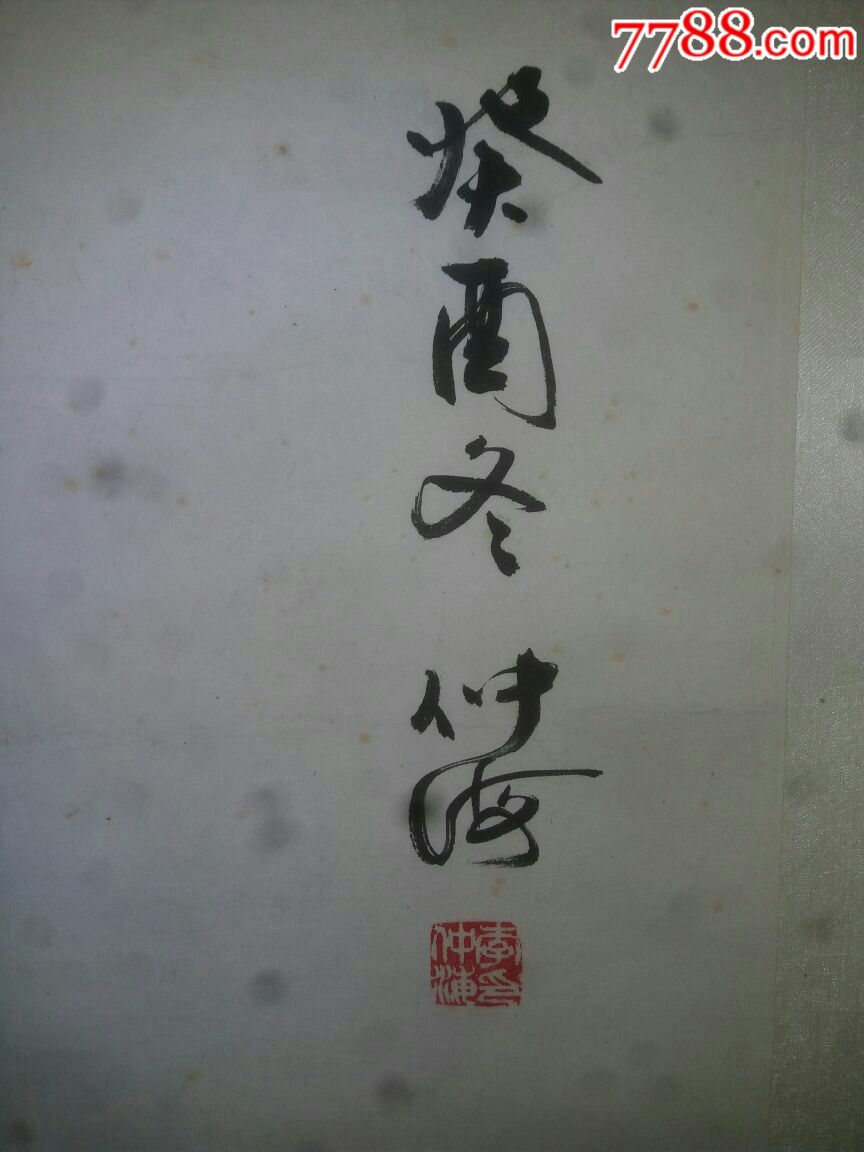 7788.com
癸酉冬 仲海
李印
仲海